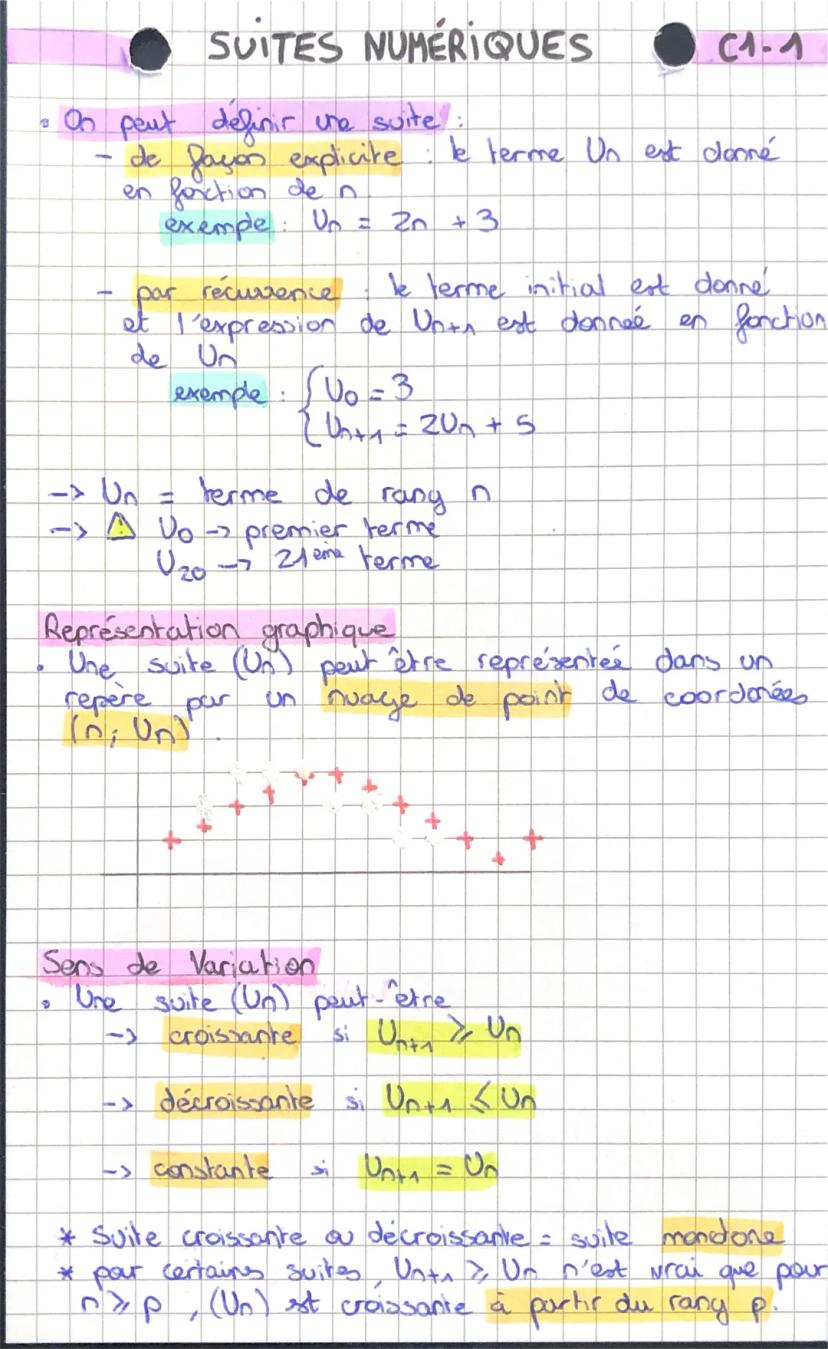 SUITES NUMÉRIQUES C1-1
• On peut définir une suite :
- de façon explicite : le terme Un est donné
en fonction de n.
exemple : Un = 2n + 3
- par récurrence : le terme initial est donné
et l'expression de Un+1 est donneé en fonction
de Un
exemple : { U0 = 3
{ Un+1 = 2Un + 5
-> Un = terme de rang n
-> ⚠ U0 -> premier terme
U20 -> 21ème terme
Représentation graphique
• Une suite (Un) peut être représenteé dans un
repère par un nuage de point de coordonées
(n; Un).
Sens de Variation
• Une suite (Un) peut-être
-> croissante si Un+1 ⩾ Un
-> décroissante si Un+1 ⩽ Un
-> constante si Un+1 = Un
* Suite croissante ou décroissante = suite monotone
* pour certains suites, Un+1 ⩾ Un n'est vrai que pour
n ⩾ p, (Un) est croissante à partir du rang p.